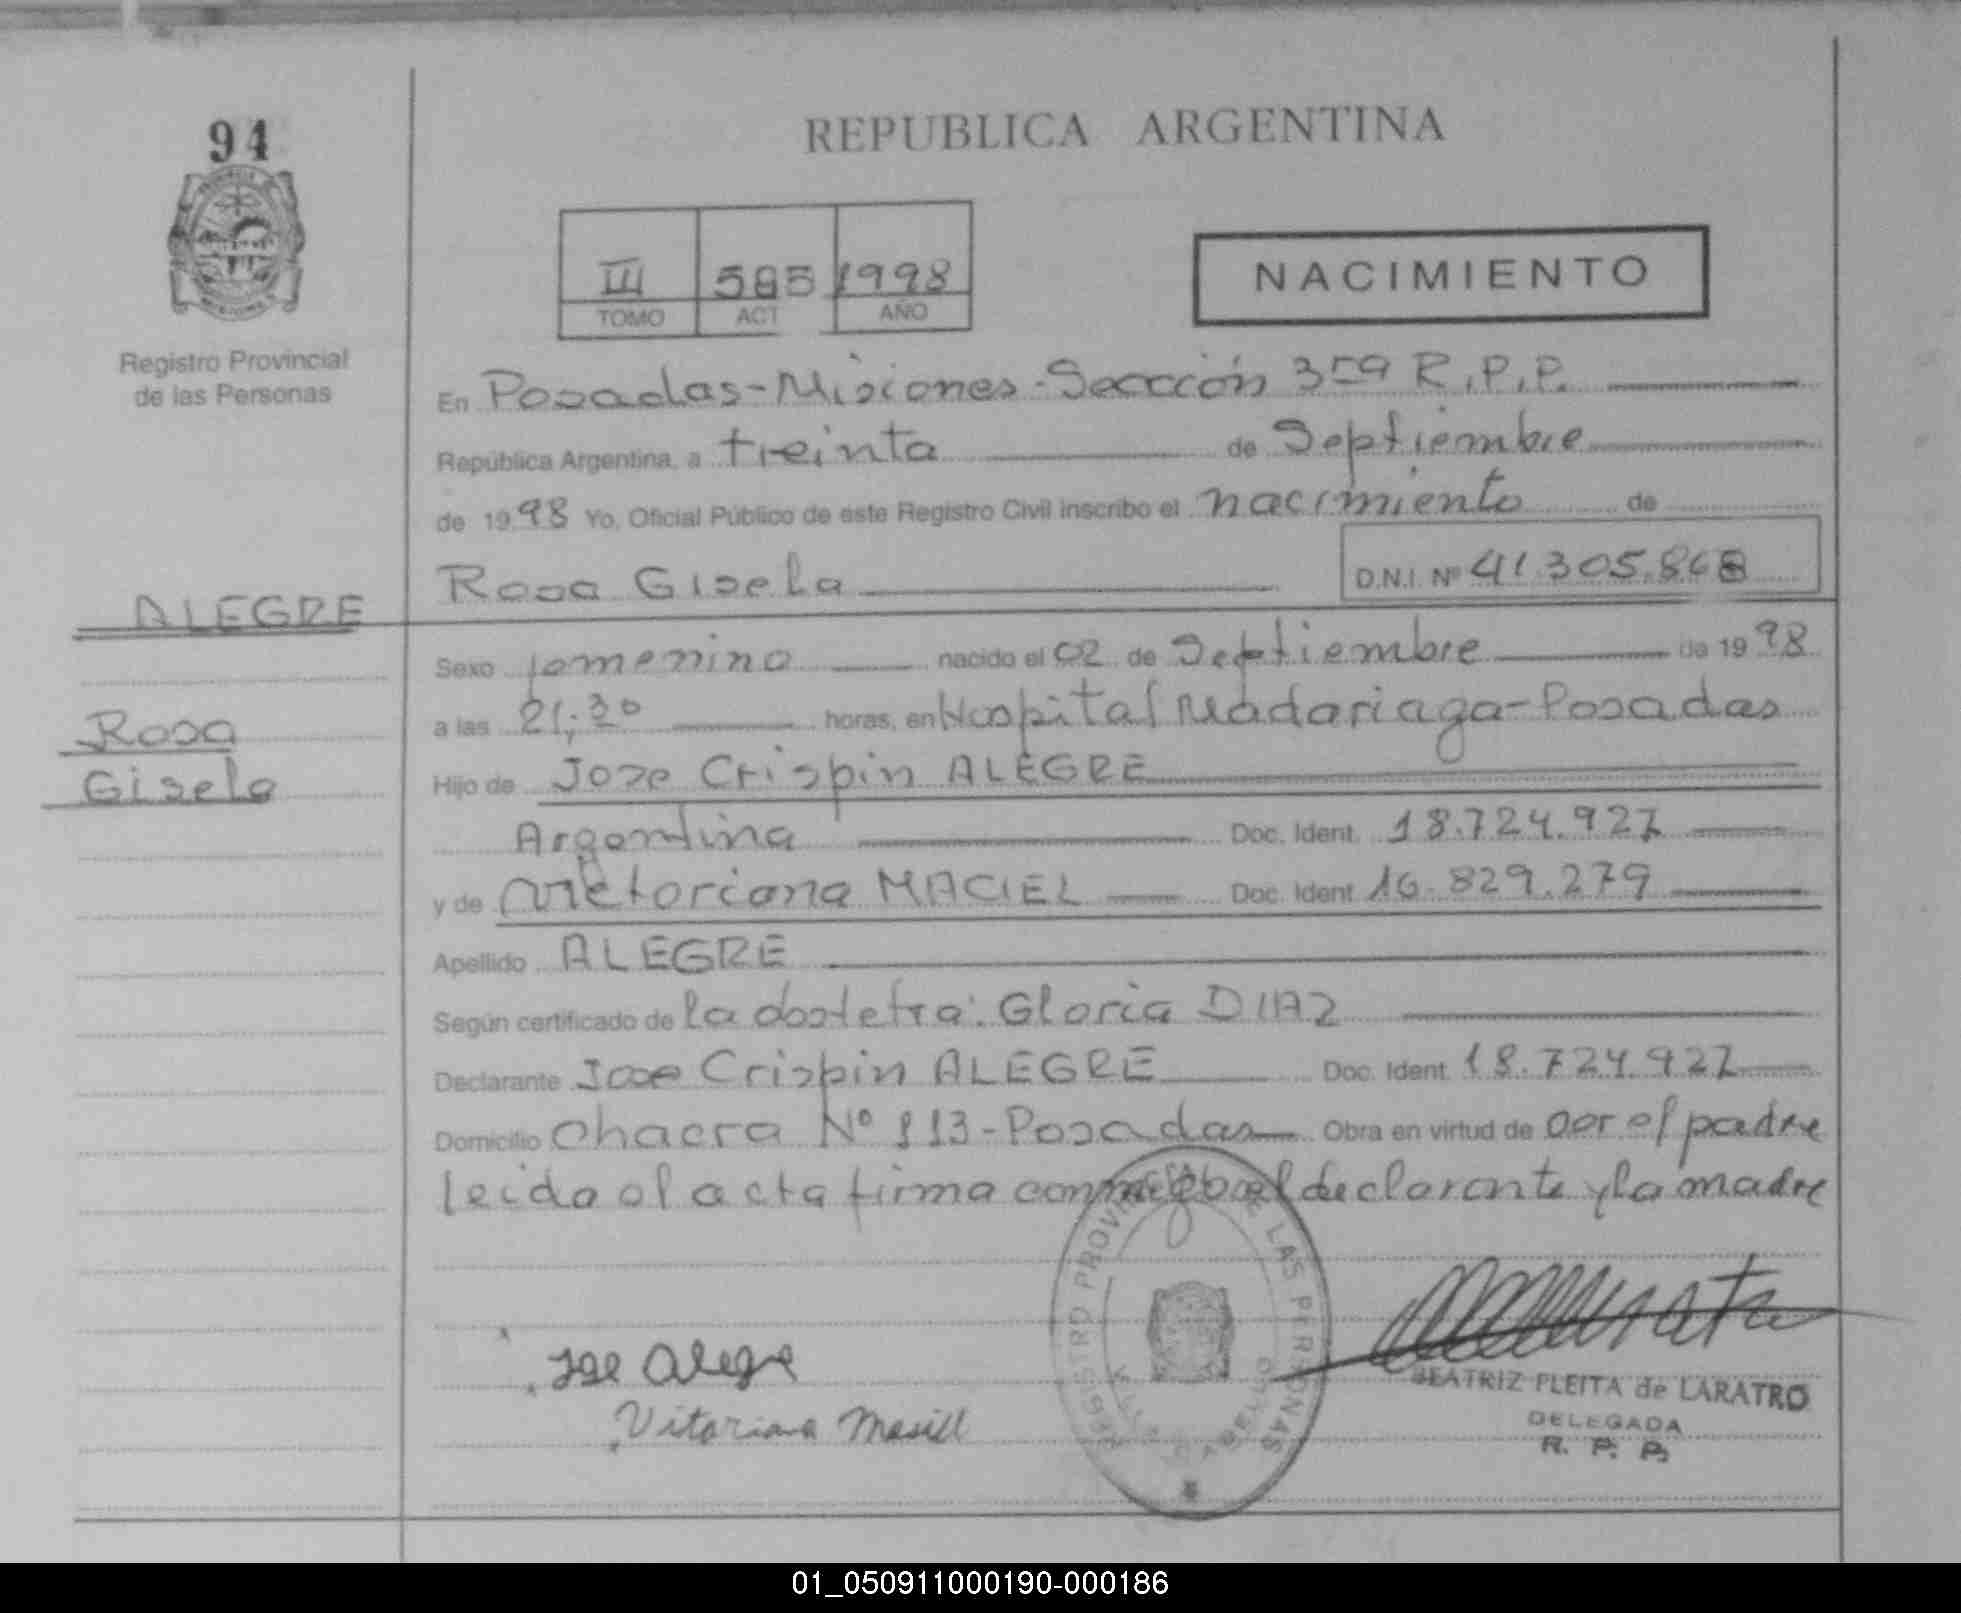 94
REPUBLICA ARGENTINA
III 585 1998
TOMO ACT AÑO
NACIMIENTO
Registro Provincial
de las Personas
En Posadas-Misiones-Sección 3ra R.P.P.
República Argentina, a treinta de Septiembre
de 1998 Yo, Oficial Público de este Registro Civil inscribo el nacimiento de
Rosa Gisela D.N.I. Nº 41.305.868
ALEGRE
Sexo femenino nacido el 02 de Septiembre de 1998
a las 21;30 horas, en Hospital Madariaga-Posadas
Rosa
Gisela
Hijo de Jose Crispin ALEGRE
Argentina Doc. Ident. 18.724.927
y de Victoriana MACIEL Doc. Ident. 16.829.279
Apellido ALEGRE
Según certificado de la obstetra: Gloria DIAZ
Declarante Jose Crispin ALEGRE Doc. Ident. 18.724.927
Domicilio Chacra Nº 113-Posadas Obra en virtud de ser el padre
leida el acta firma conmigo el declarante y la madre
REGISTRO PROVINCIAL DE LAS PERSONAS
Jose Alegre
Vitoriana Masiel
BEATRIZ PLEITA de LARATRO
DELEGADA
R. P. P.
01_050911000190-000186